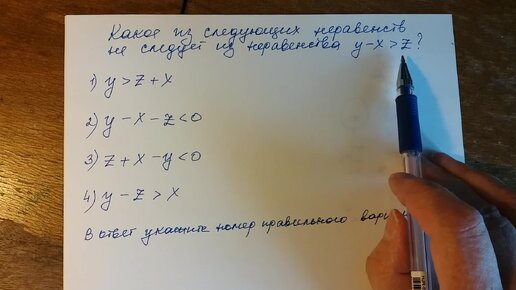 Какое из следующих неравенств
не следует из неравенства y-x>z?
1) y>z+x
2) y-x-z<0
3) z+x-y<0
4) y-z>x
В ответ укажите номер правильного